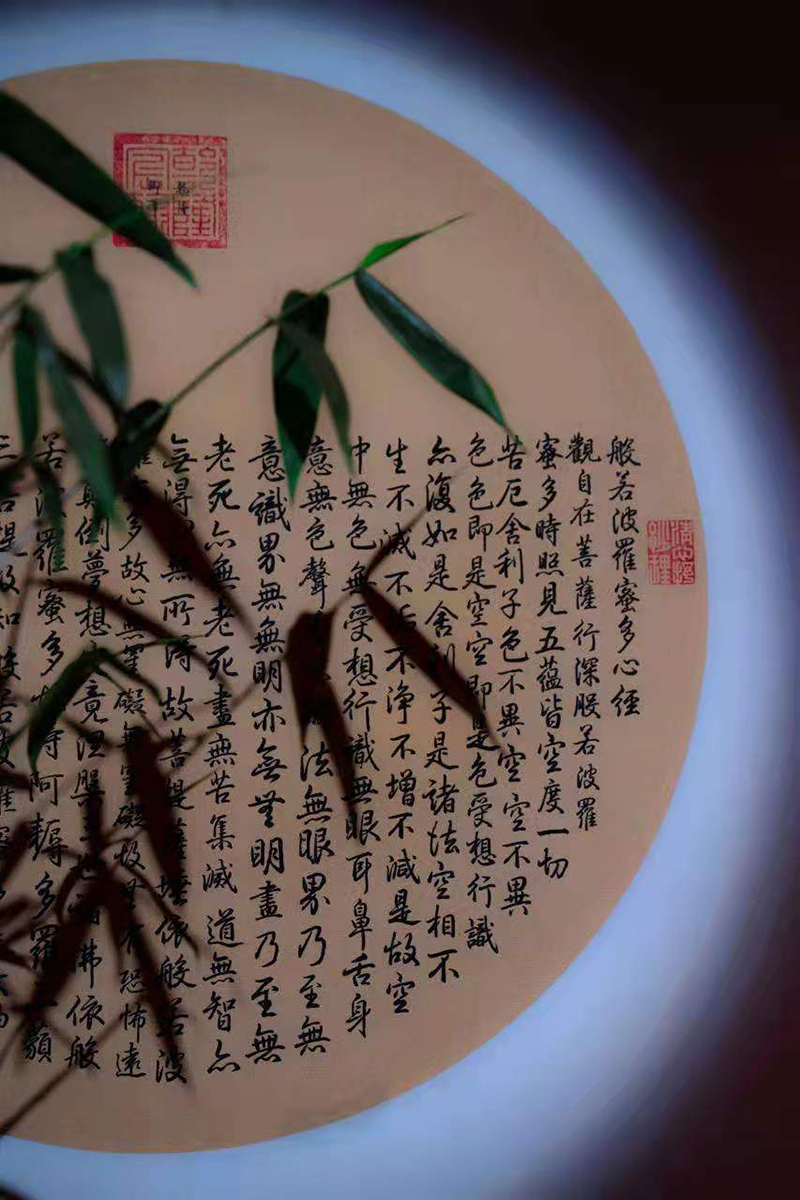 般若波羅蜜多心經
觀自在菩薩行深般若波羅
蜜多時照見五蘊皆空度一切
苦厄舍利子色不異空空不異
色色即是空空即是色受想行識
亦復如是舍利子是諸法空相不
生不滅不垢不淨不增不減是故空
中無色無受想行識無眼耳鼻舌身
意無色聲法無眼界乃至無
意識界無無明亦無無明盡乃至無
老死亦無老死盡無苦集滅道無智亦
無得以無所得故菩提薩埵依般若波
多故心無罣礙無罣礙故無有恐怖遠
顛倒夢想究竟涅槃三世諸佛依般
若波羅蜜多故得阿耨多羅三藐
三菩提故知般若波羅蜜多